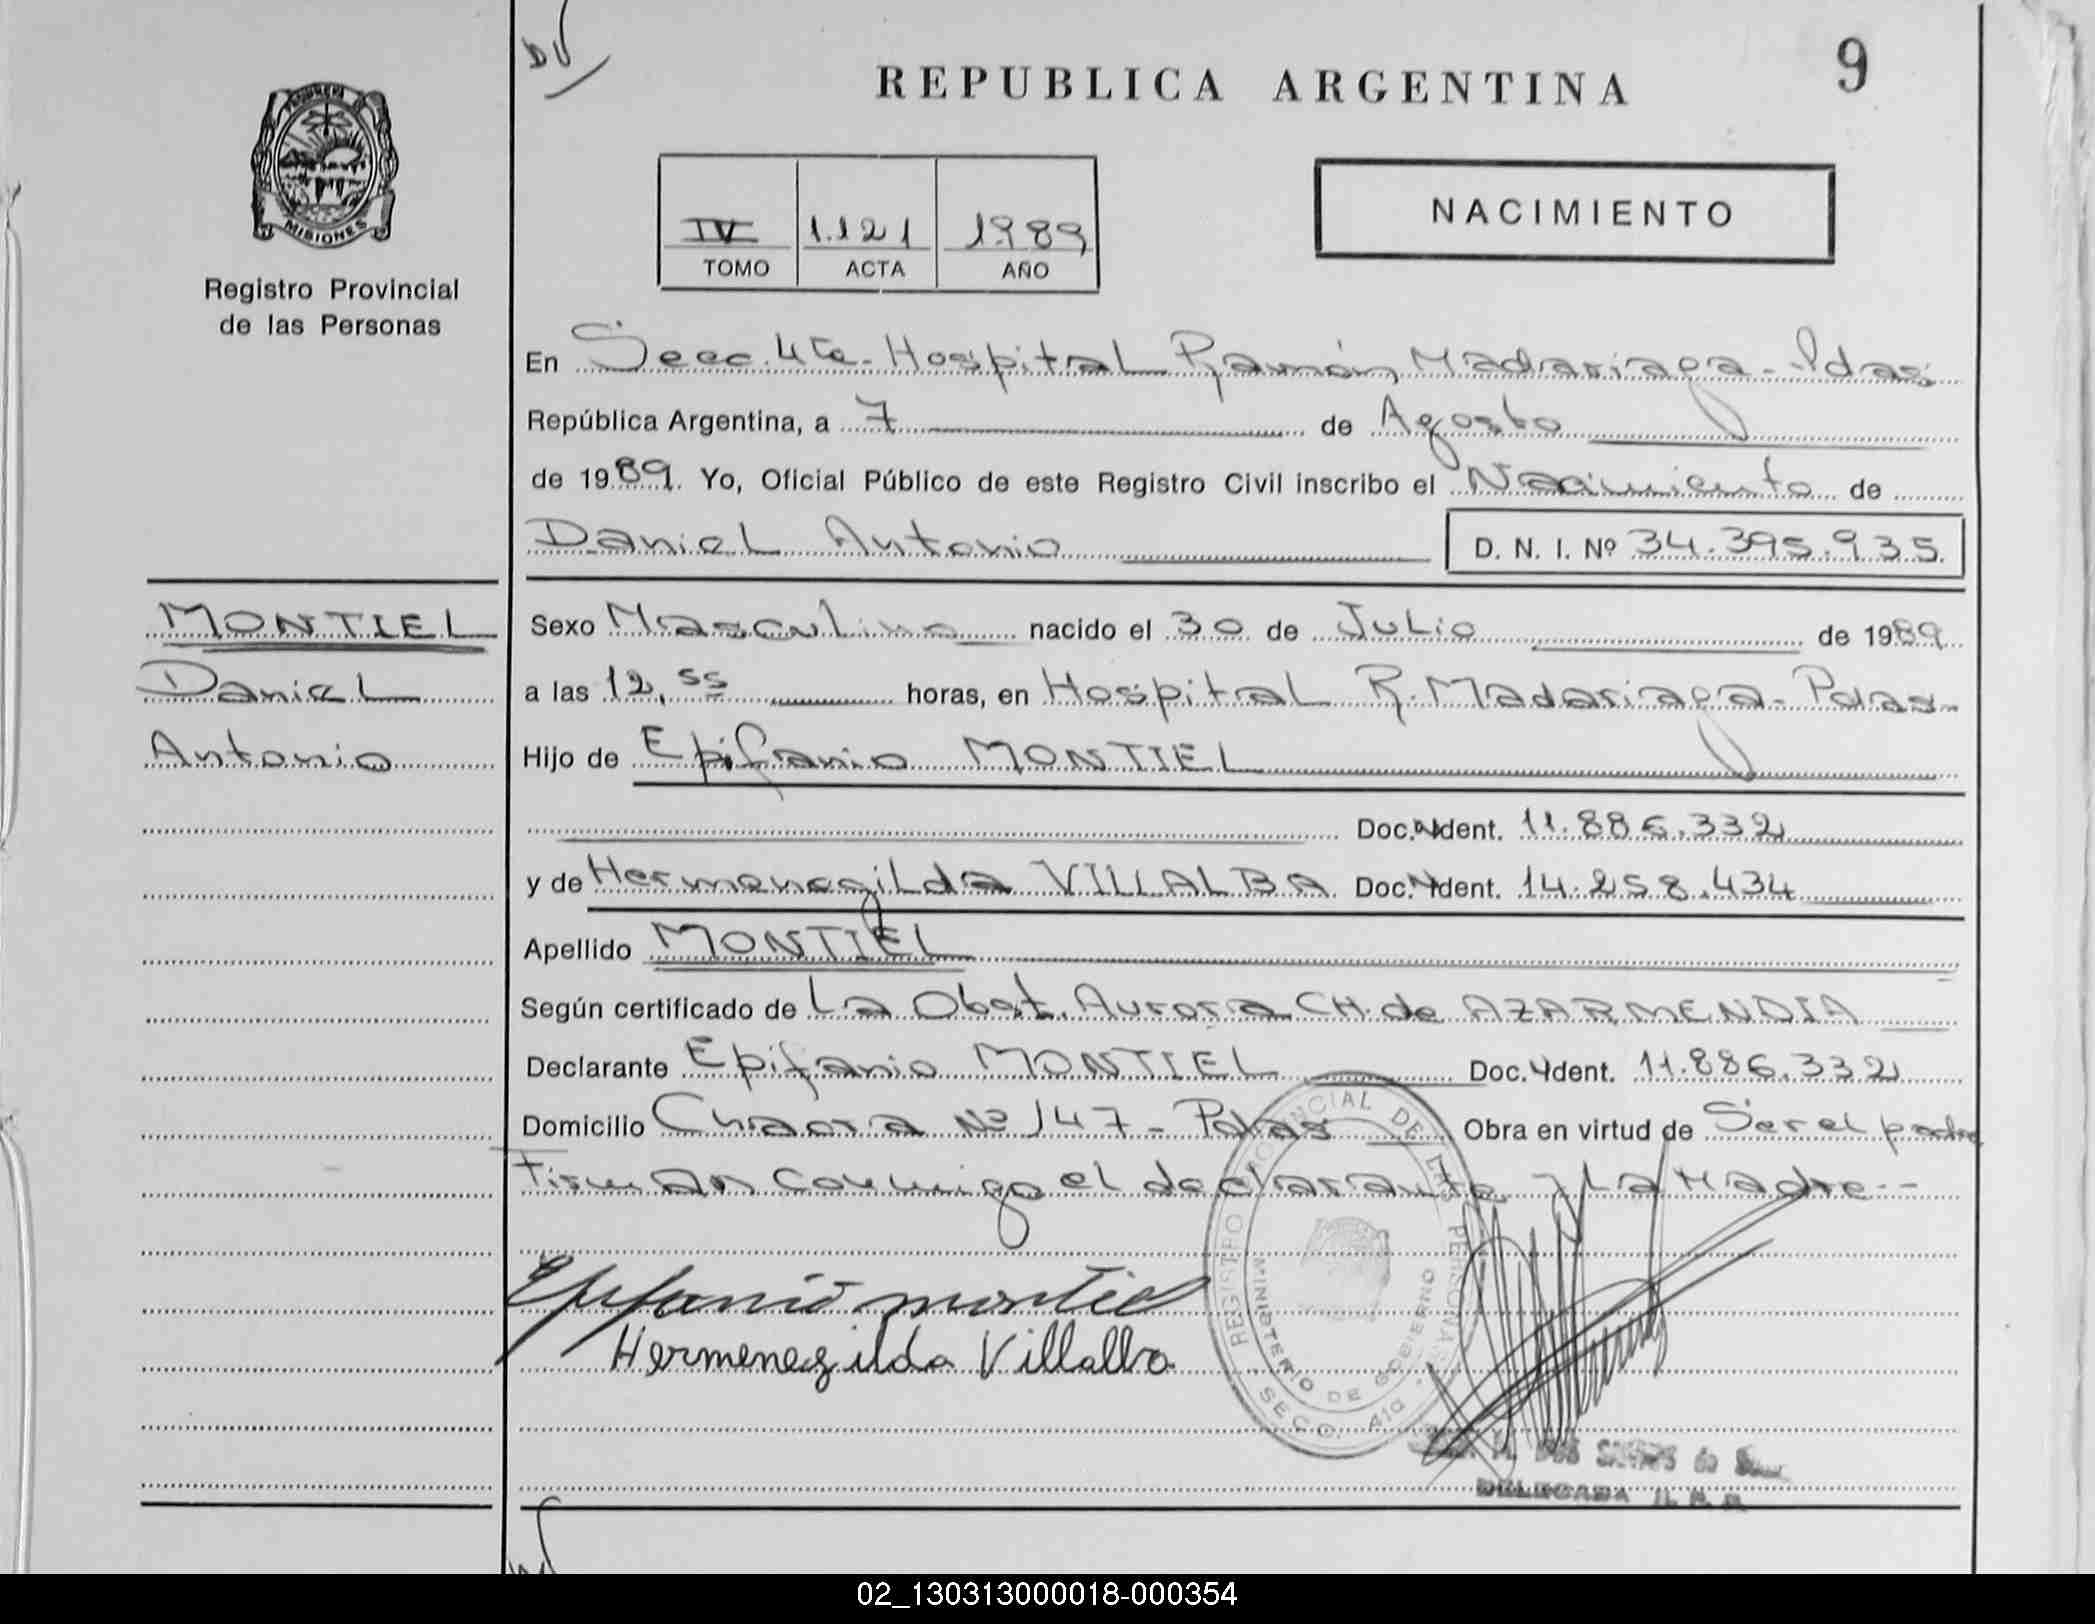 DV
REPUBLICA ARGENTINA
9
MISIONES
Registro Provincial
de las Personas
IV 1.121 1989
TOMO ACTA AÑO
NACIMIENTO
En Secc. 4ta - Hospital Ramón Madariaga - Pdas
República Argentina, a 7 de Agosto
de 1989. Yo, Oficial Público de este Registro Civil inscribo el Nacimiento de
Daniel Antonio D. N. I. Nº 34.395.935
MONTIEL
Daniel
Antonio
Sexo Masculino nacido el 30 de Julio de 1989
a las 12,55 horas, en Hospital R. Madariaga - Pdas -
Hijo de Epifanio MONTIEL
Doc. Ident. 11.886.332
y de Hermenegilda VILLALBA Doc. Ident. 14.258.434
Apellido MONTIEL
Según certificado de La Obst. Aurora CH. de AZARMENDIA
Declarante Epifanio MONTIEL Doc. Ident. 11.886.332
Domicilio Chacra Nº 147 - Pdas Obra en virtud de Ser el padre
Firman conmigo el declarante y La Madre --
Epifanio montiel
Hermenegilda Villalba
REGISTRO PROVINCIAL DE LAS PERSONAS
MINISTERIO DE GOBIERNO
SECC. 41a
DOS SANTOS de
DELEGADA
02_130313000018-000354